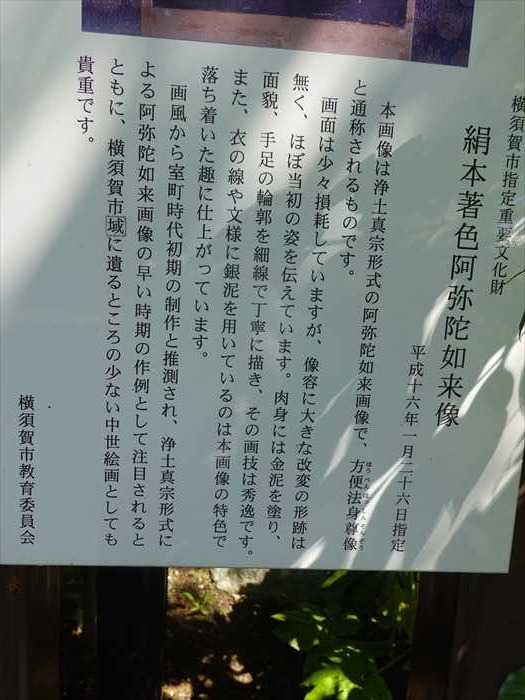 横須賀市指定重要文化財
絹本著色阿弥陀如来像
平成十六年一月二十六日指定
本画像は浄土真宗形式の阿弥陀如来画像で、方便法身尊像
と通称されるものです。
画面は少々損耗していますが、像容に大きな改変の形跡は
無く、ほぼ当初の姿を伝えています。肉身には金泥を塗り、
面貌、手足の輪郭を細線で丁寧に描き、その画技は秀逸です。
また、衣の線や文様に銀泥を用いているのは本画像の特色で
落ち着いた趣に仕上がっています。
画風から室町時代初期の制作と推測され、浄土真宗形式に
よる阿弥陀如来画像の早い時期の作例として注目されると
ともに、横須賀市域に遺るところの少ない中世絵画としても
貴重です。
横須賀市教育委員会